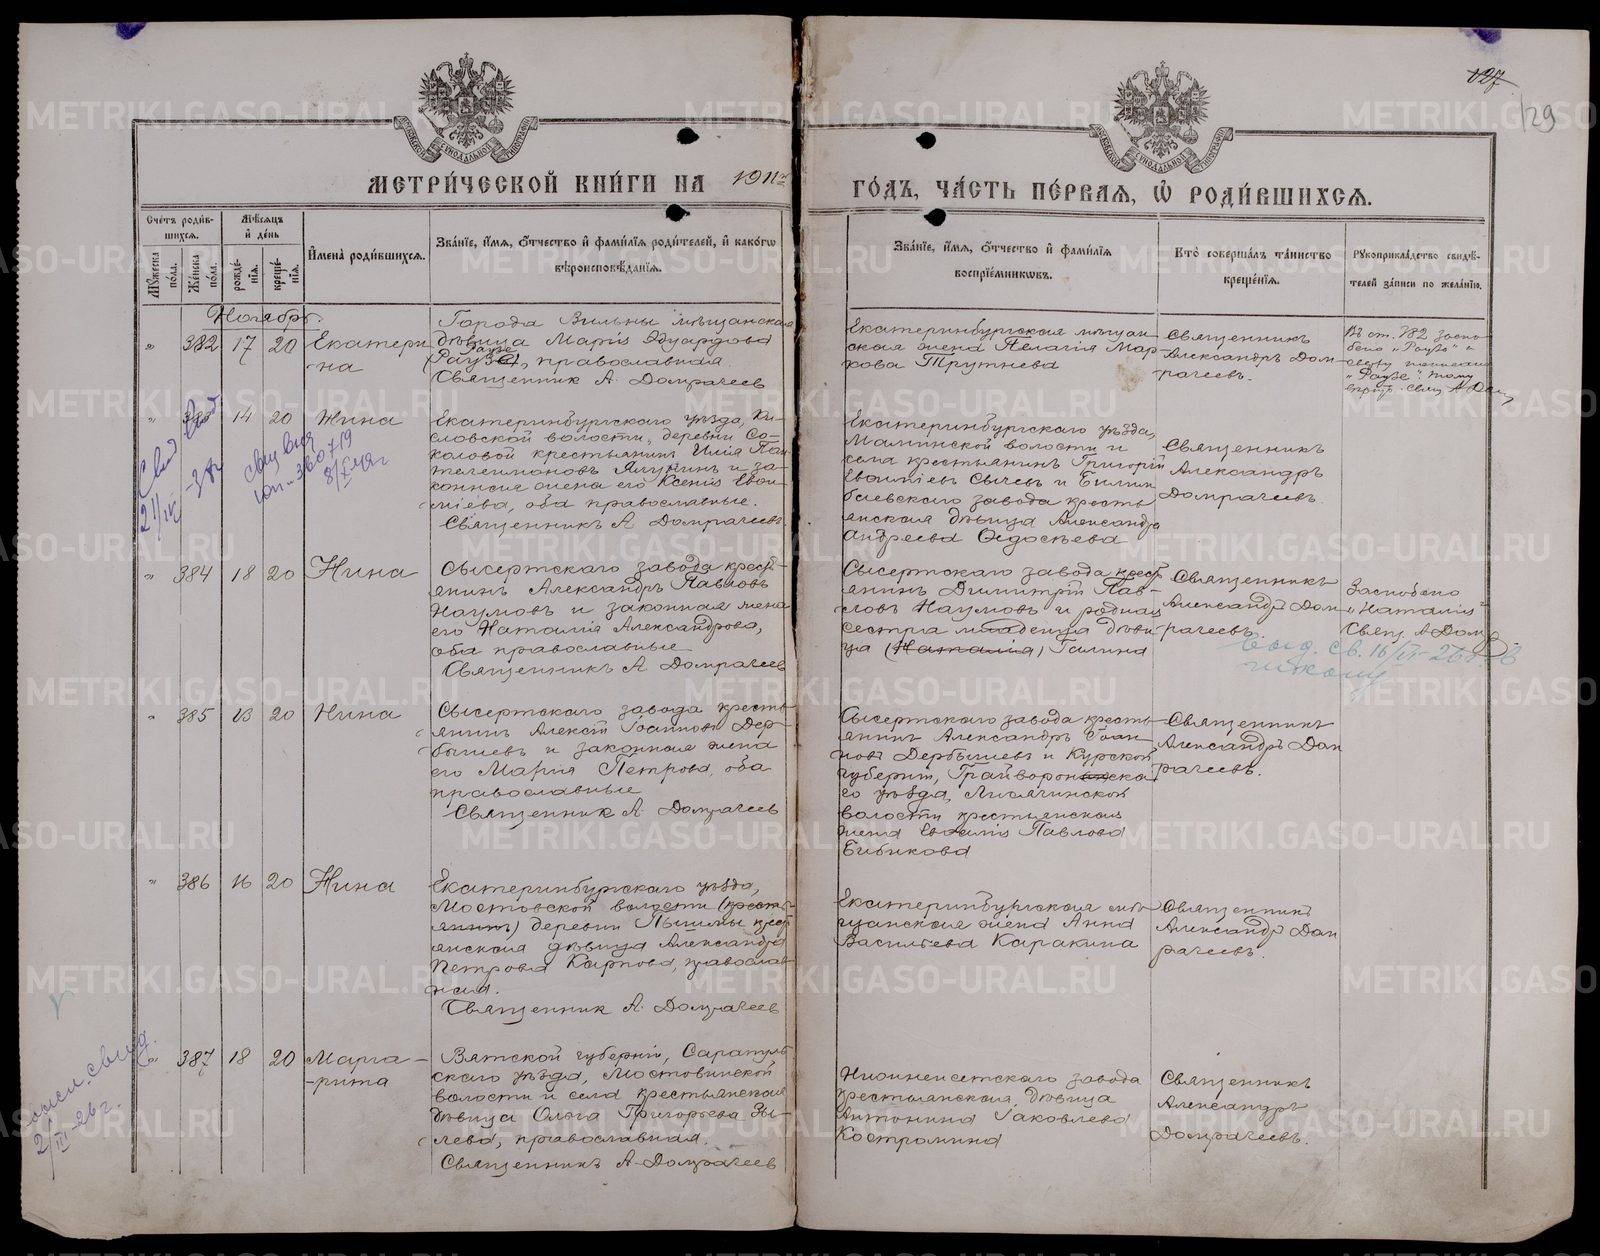 127
129
МЕТРИ́ЧЕСКОЙ КНИ́ГИ НА 1911й ГО́ДЪ, ЧА́СТЬ ПЕ́РВАЯ, Ѡ РОДИ́ВШИХСЯ.
Сче́тъ роди́вшихся.
Му́жеска по́ла.
Же́нска по́ла.
Мѣ́сяцъ и де́нь
рожде́нія.
креще́нія.
И҆мена̀ роди́вшихся.
Зва́ніе, и҆́мя, ѻ҆́тчество и҆ фами́лія роди́телей, и҆ како́гѡ вѣроисповѣ́данія.
Зва́ніе, и҆́мя, ѻ҆́тчество и҆ фами́лія воспріе́мникѡвъ.
Кто̀ соверша́лъ та́инство креще́нія.
Рꙋкоприкла́дство свидѣ́телей за́писи по жела́нію.
Ноябрь.
" 382 17 20 Екатери
на
Города Вильны мѣщанская
дѣвица Марія Эдуардова
Раузе
(Раузе), православная
Священник А. Домрачеев
Екатеринбургская мѣщан-
ская жена Пелагія Мар
кова Трутнева
Священникъ
Александръ Дом-
рачеевъ.
Въ ст. 382
" 383 14 20 Нина
Екатеринбургскаго уѣзда, Ки-
словской волости, деревни Со-
коловой крестьянинъ Илія Пан
телеимоновъ Ялунинъ и за-
конная жена его Ксенія Евѳи-
міева, оба православные.
Священникъ А Домрачеевъ
Екатеринбургскаго уѣзда,
Маминской волости и
села крестьянинъ Григорій
Евѳиміевъ Сычевъ и Билим
баевскаго завода кресть
янская дѣвица Александра
Андреева Ѳедосѣева
Священникъ
Александръ
Домрачеевъ.
" 384 18 20 Нина
Сысертскаго завода крест-
янинъ Александръ Павловъ
Наумовъ и законная жена
его Наталія Александрова,
оба православные
Священникъ А Домрачеев
Сысертскаго завода крест
янинъ Димитрій Пав-
ловъ Наумовъ и родная
сестра младенца дѣви
ца (Наталія) Галина
Священникъ
Александръ Дом
рачеевъ.
Заскоблено
"Наталія"
Свящ. А Домр
" 385 13 20 Нина
Сысертскаго завода кресть
янинъ Алексѣй Іоанновъ Дер-
бышевъ и законная жена
его Марія Петрова, оба
православные
Священник А. Домрачеев
Сысертскаго завода кресть
янинъ Александръ Іоан-
новъ Дербышевъ и Курской
губерніи, Грайворонска
го уѣзда, Лисичинской
волости крестьянская
жена Евѳимія Павлова
Бибикова
Священникъ
Александръ Дом
рачеевъ.
" 386 16 20 Нина
Екатеринбургскаго уѣзда,
Мостовской волости (кресть
янинъ) деревни Пышмы крест
янская дѣвица Александра
Петрова Карпова, православ-
ная.
Священник А. Домрачеев
Екатеринбургская мѣ-
щанская жена Анна
Васильева Каракина
Священникъ
Александръ Дом
рачеевъ.
" 387 18 20 Марга-
-рита
Вятской губерніи, Сарапуль
скаго уѣзда, Мостовинской
волости и села крестьянская
дѣвица Ольга Григорьева Зы-
лева, православная.
Священникъ А. Домрачеев
Нижнеисетскаго завода
крестьянская дѣвица
Антонина Іаковлева
Костромина
Священникъ
Александръ
Домрачеевъ.
METRIKI.GASO-URAL.RU